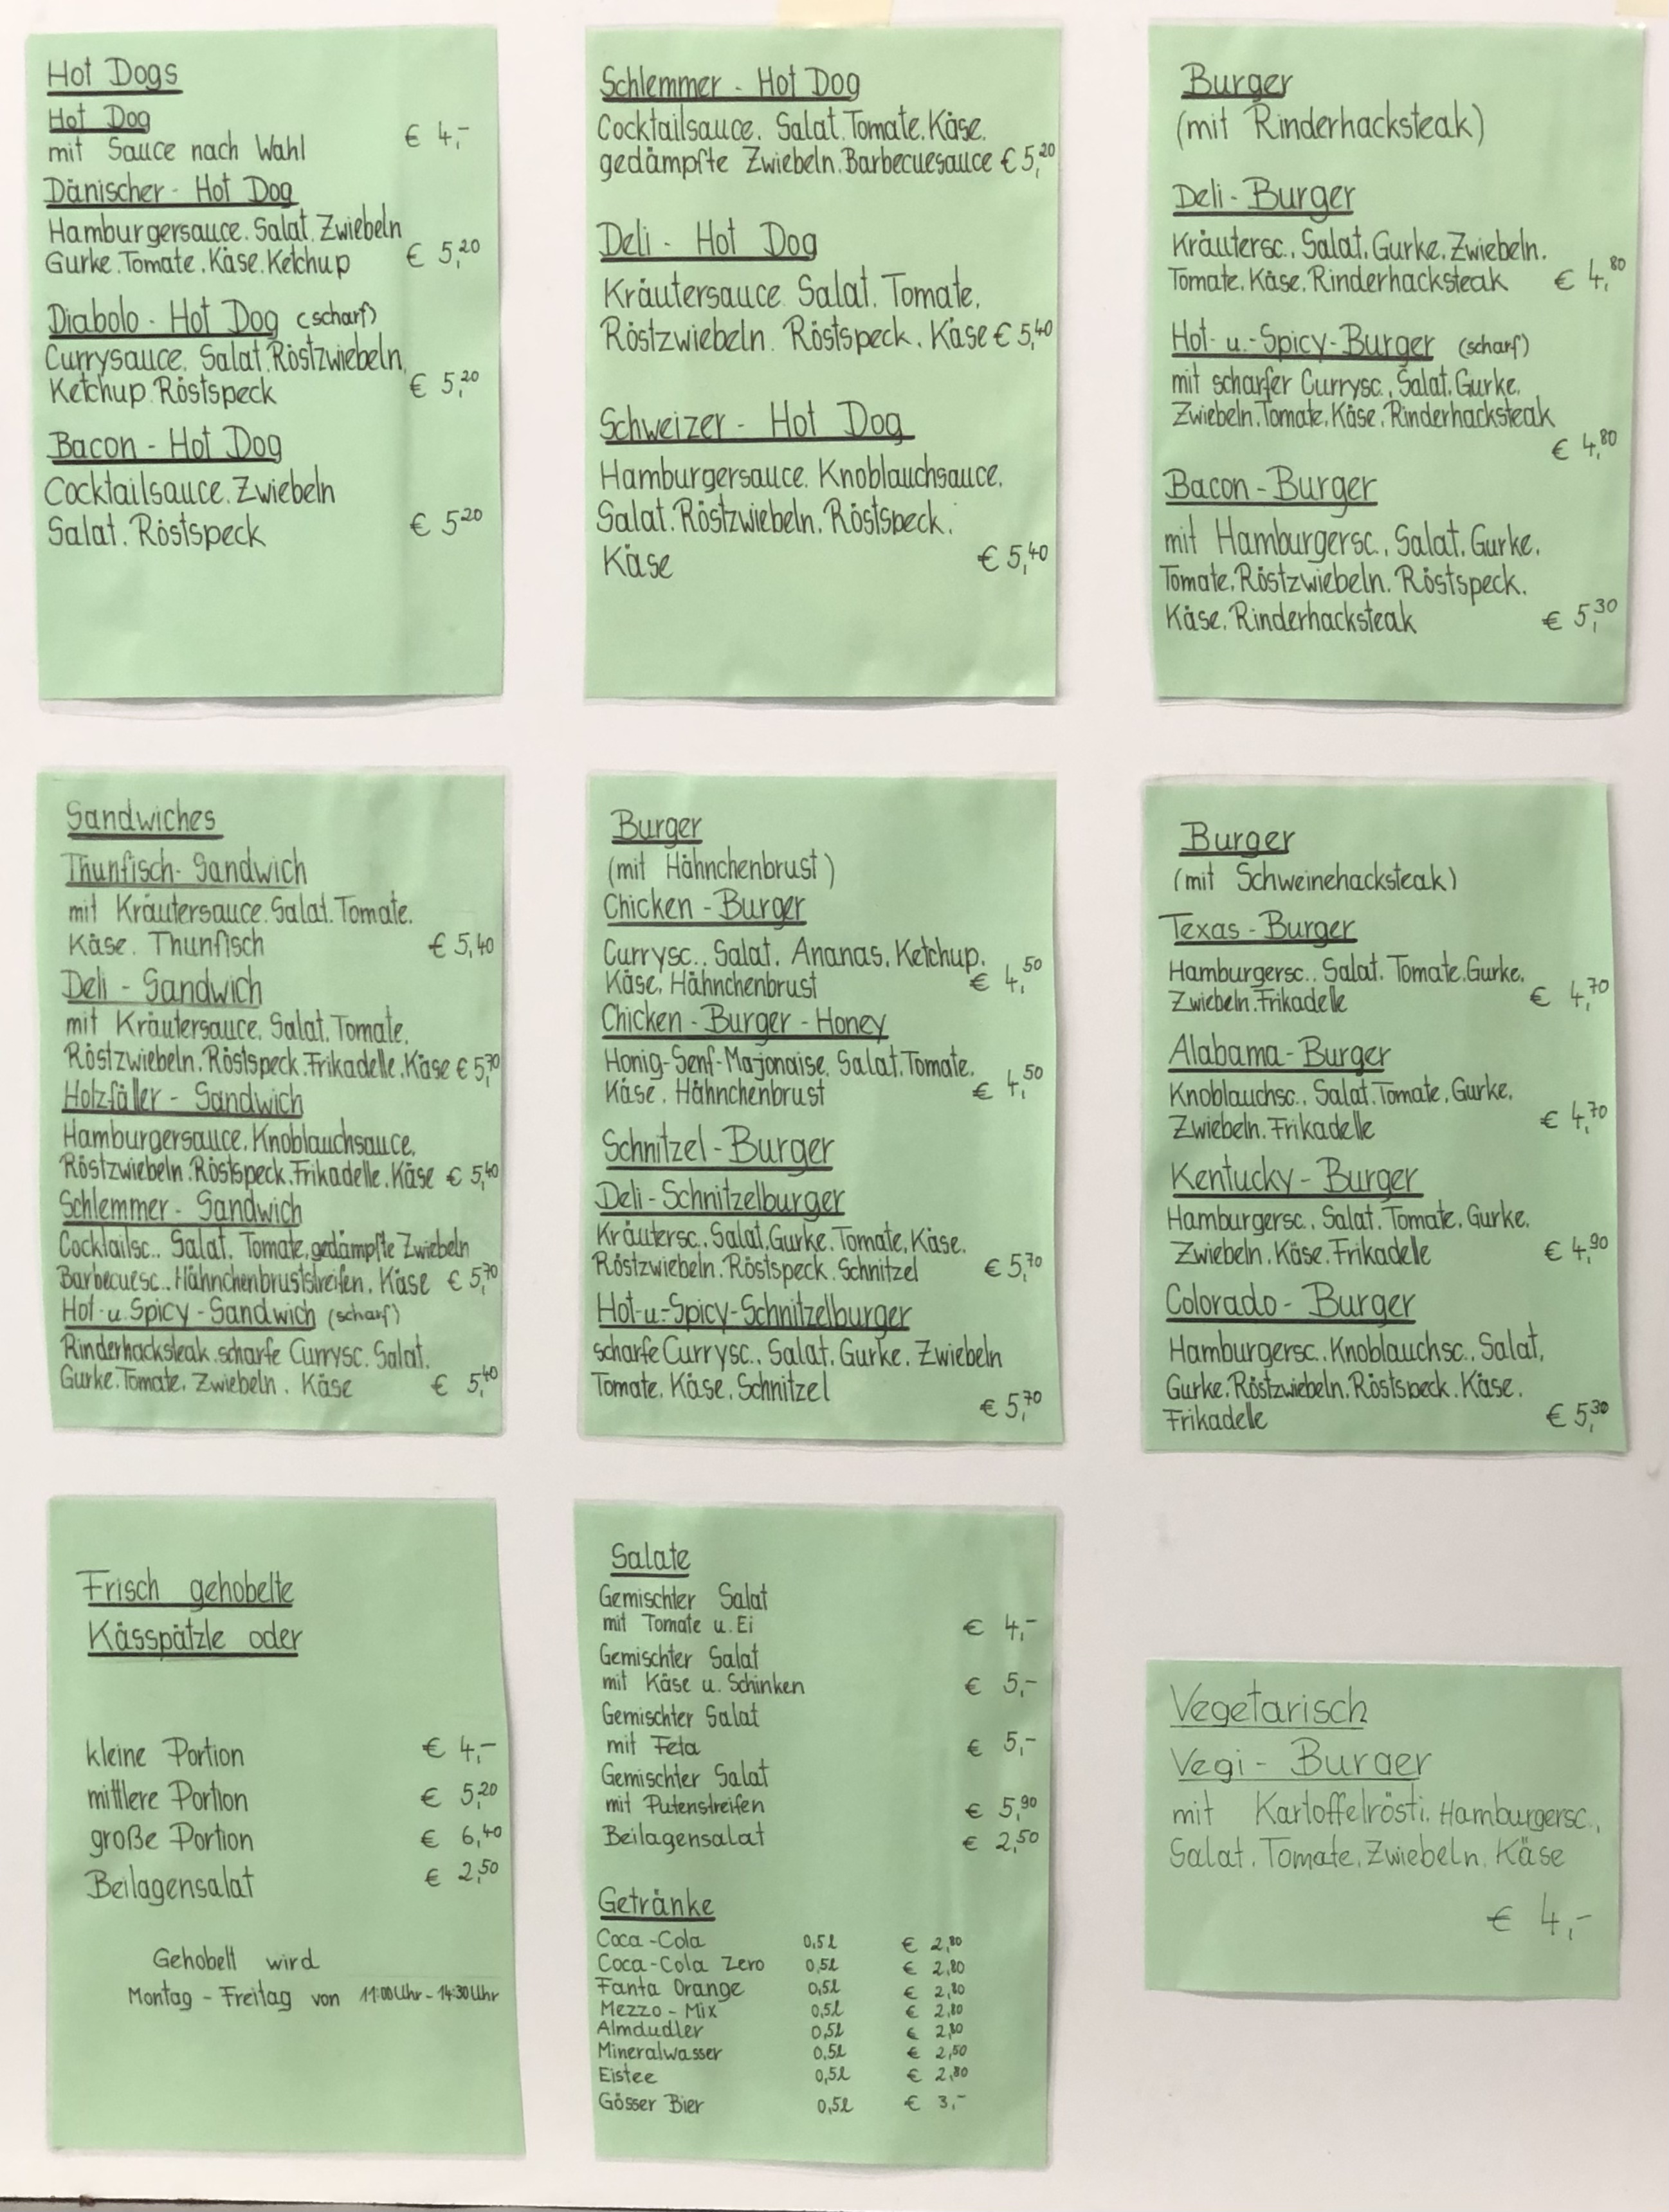 Hot Dogs
Hot Dog
mit Sauce nach Wahl € 4,-
Dänischer - Hot Dog
Hamburgersauce. Salat. Zwiebeln
Gurke. Tomate. Käse. Ketchup € 5,20
Diabolo - Hot Dog (scharf)
Currysauce. Salat. Röstzwiebeln.
Ketchup. Röstspeck € 5,20
Bacon - Hot Dog
Cocktailsauce. Zwiebeln
Salat. Röstspeck € 5,20
Schlemmer - Hot Dog
Cocktailsauce. Salat. Tomate. Käse.
gedämpfte Zwiebeln. Barbecuesauce € 5,20
Deli - Hot Dog
Kräutersauce. Salat. Tomate.
Röstzwiebeln. Röstspeck. Käse € 5,40
Schweizer - Hot Dog
Hamburgersauce. Knoblauchsauce.
Salat. Röstzwiebeln. Röstspeck.
Käse € 5,40
Burger
(mit Rinderhacksteak)
Deli - Burger
Kräutersc., Salat. Gurke. Zwiebeln.
Tomate. Käse. Rinderhacksteak € 4,80
Hot- u.-Spicy-Burger (scharf)
mit scharfer Currysc., Salat. Gurke.
Zwiebeln. Tomate. Käse. Rinderhacksteak
€ 4,80
Bacon - Burger
mit Hamburgersc., Salat. Gurke.
Tomate. Röstzwiebeln. Röstspeck.
Käse. Rinderhacksteak € 5,30
Sandwiches
Thunfisch- Sandwich
mit Kräutersauce. Salat. Tomate.
Käse. Thunfisch € 5,40
Deli - Sandwich
mit Kräutersauce. Salat. Tomate.
Röstzwiebeln. Röstspeck. Frikadelle. Käse € 5,70
Holzfäller - Sandwich
Hamburgersauce. Knoblauchsauce.
Röstzwiebeln. Röstspeck. Frikadelle. Käse € 5,40
Schlemmer - Sandwich
Cocktailsc.. Salat. Tomate. gedämpfte Zwiebeln
Barbecuesc.. Hähnchenbruststreifen. Käse € 5,70
Hot-u.Spicy-Sandwich (scharf)
Rinderhacksteak. scharfe Currysc. Salat.
Gurke. Tomate. Zwiebeln. Käse € 5,40
Burger
(mit Hähnchenbrust)
Chicken - Burger
Currysc.. Salat. Ananas. Ketchup.
Käse. Hähnchenbrust € 4,50
Chicken - Burger - Honey
Honig-Senf-Majonaise. Salat. Tomate.
Käse. Hähnchenbrust € 4,50
Schnitzel - Burger
Deli - Schnitzelburger
Kräutersc.. Salat. Gurke. Tomate. Käse.
Röstzwiebeln. Röstspeck. Schnitzel € 5,70
Hot-u.-Spicy-Schnitzelburger
scharfe Currysc.. Salat. Gurke. Zwiebeln
Tomate. Käse. Schnitzel
€ 5,70
Burger
(mit Schweinehacksteak)
Texas - Burger
Hamburgersc.. Salat. Tomate. Gurke.
Zwiebeln. Frikadelle € 4,70
Alabama - Burger
Knoblauchsc.. Salat. Tomate. Gurke.
Zwiebeln. Frikadelle € 4,70
Kentucky - Burger
Hamburgersc.. Salat. Tomate. Gurke.
Zwiebeln. Käse. Frikadelle € 4,90
Colorado - Burger
Hamburgersc.. Knoblauchsc.. Salat.
Gurke. Röstzwiebeln. Röstspeck. Käse.
Frikadelle € 5,30
Frisch gehobelte
Kässpätzle oder
kleine Portion € 4,-
mittlere Portion € 5,20
große Portion € 6,40
Beilagensalat € 2,50
Gehobelt wird
Montag - Freitag von 11:00 Uhr - 14:30 Uhr
Salate
Gemischter Salat
mit Tomate u. Ei € 4,-
Gemischter Salat
mit Käse u. Schinken € 5,-
Gemischter Salat
mit Feta € 5,-
Gemischter Salat
mit Putenstreifen € 5,90
Beilagensalat € 2,50
Getränke
Coca-Cola 0,5l € 2,80
Coca-Cola Zero 0,5l € 2,80
Fanta Orange 0,5l € 2,80
Mezzo - Mix 0,5l € 2,80
Almdudler 0,5l € 2,80
Mineralwasser 0,5l € 2,50
Eistee 0,5l € 2,80
Gösser Bier 0,5l € 3,-
Vegetarisch
Vegi - Burger
mit Kartoffelrösti. Hamburgersc.,
Salat. Tomate. Zwiebeln. Käse
€ 4,-